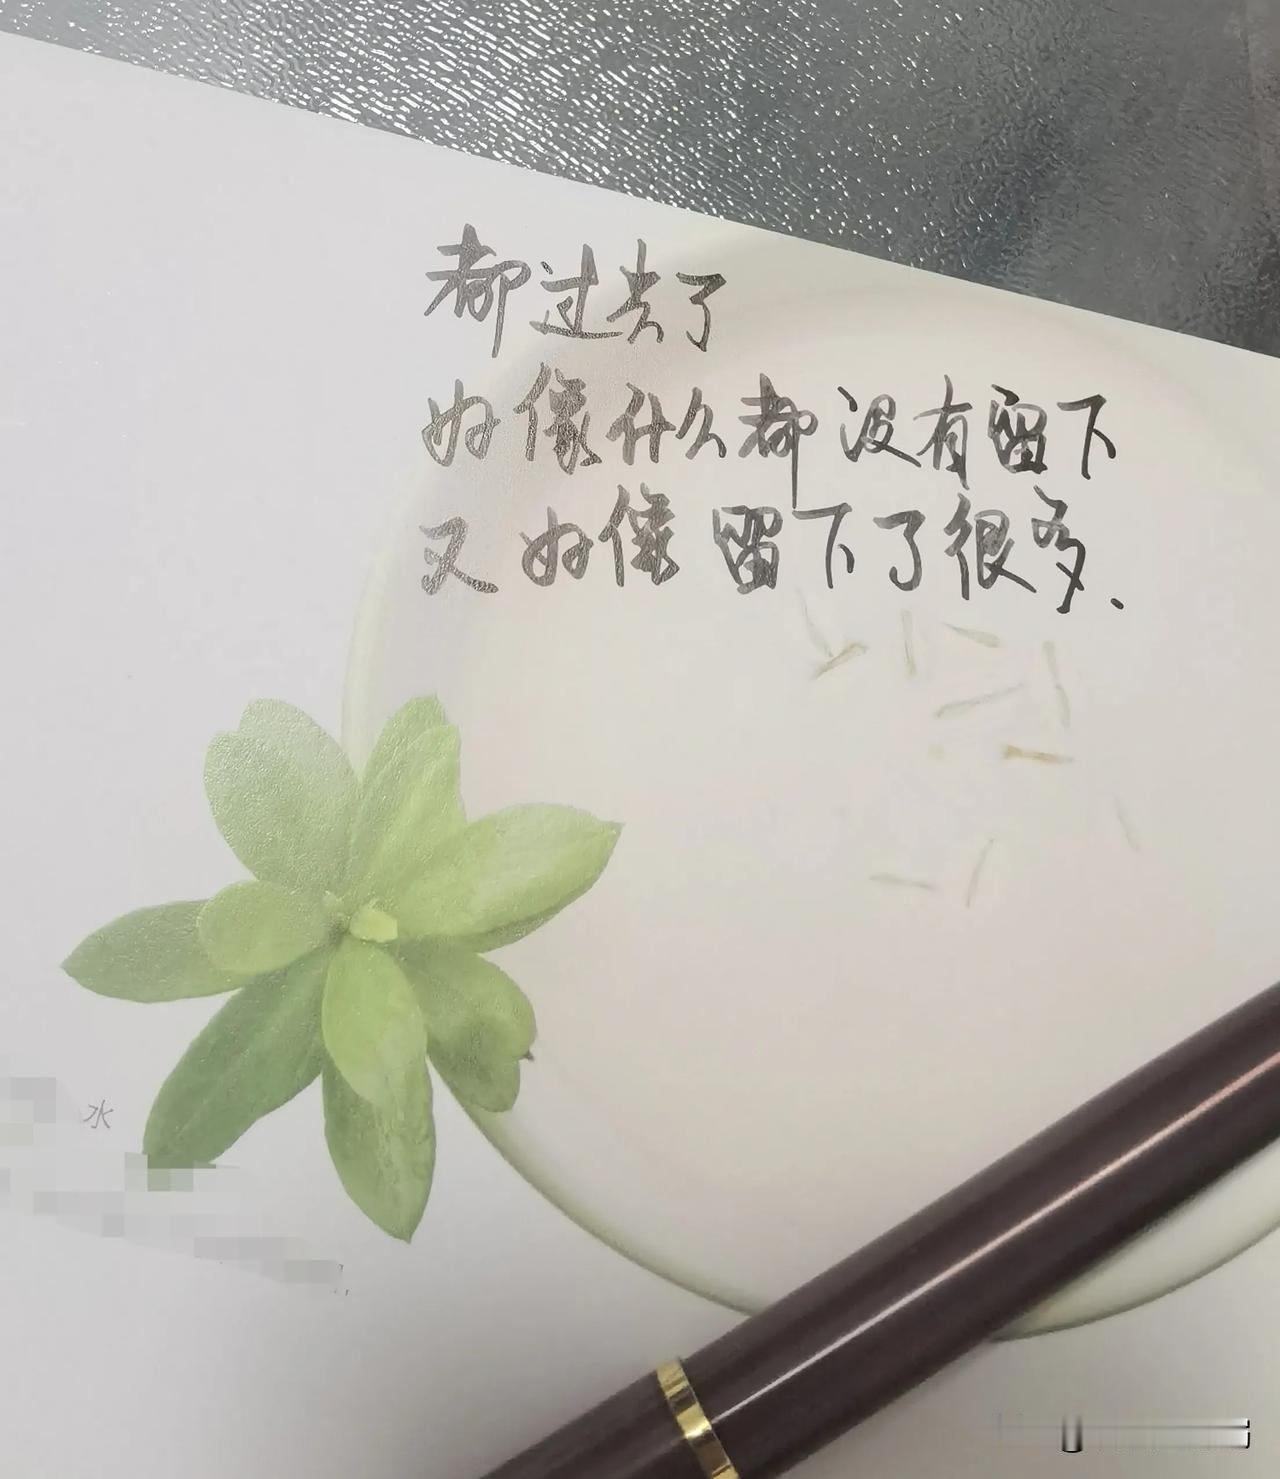 都过去了
好像什么都没有留下
又好像留下了很多.
水